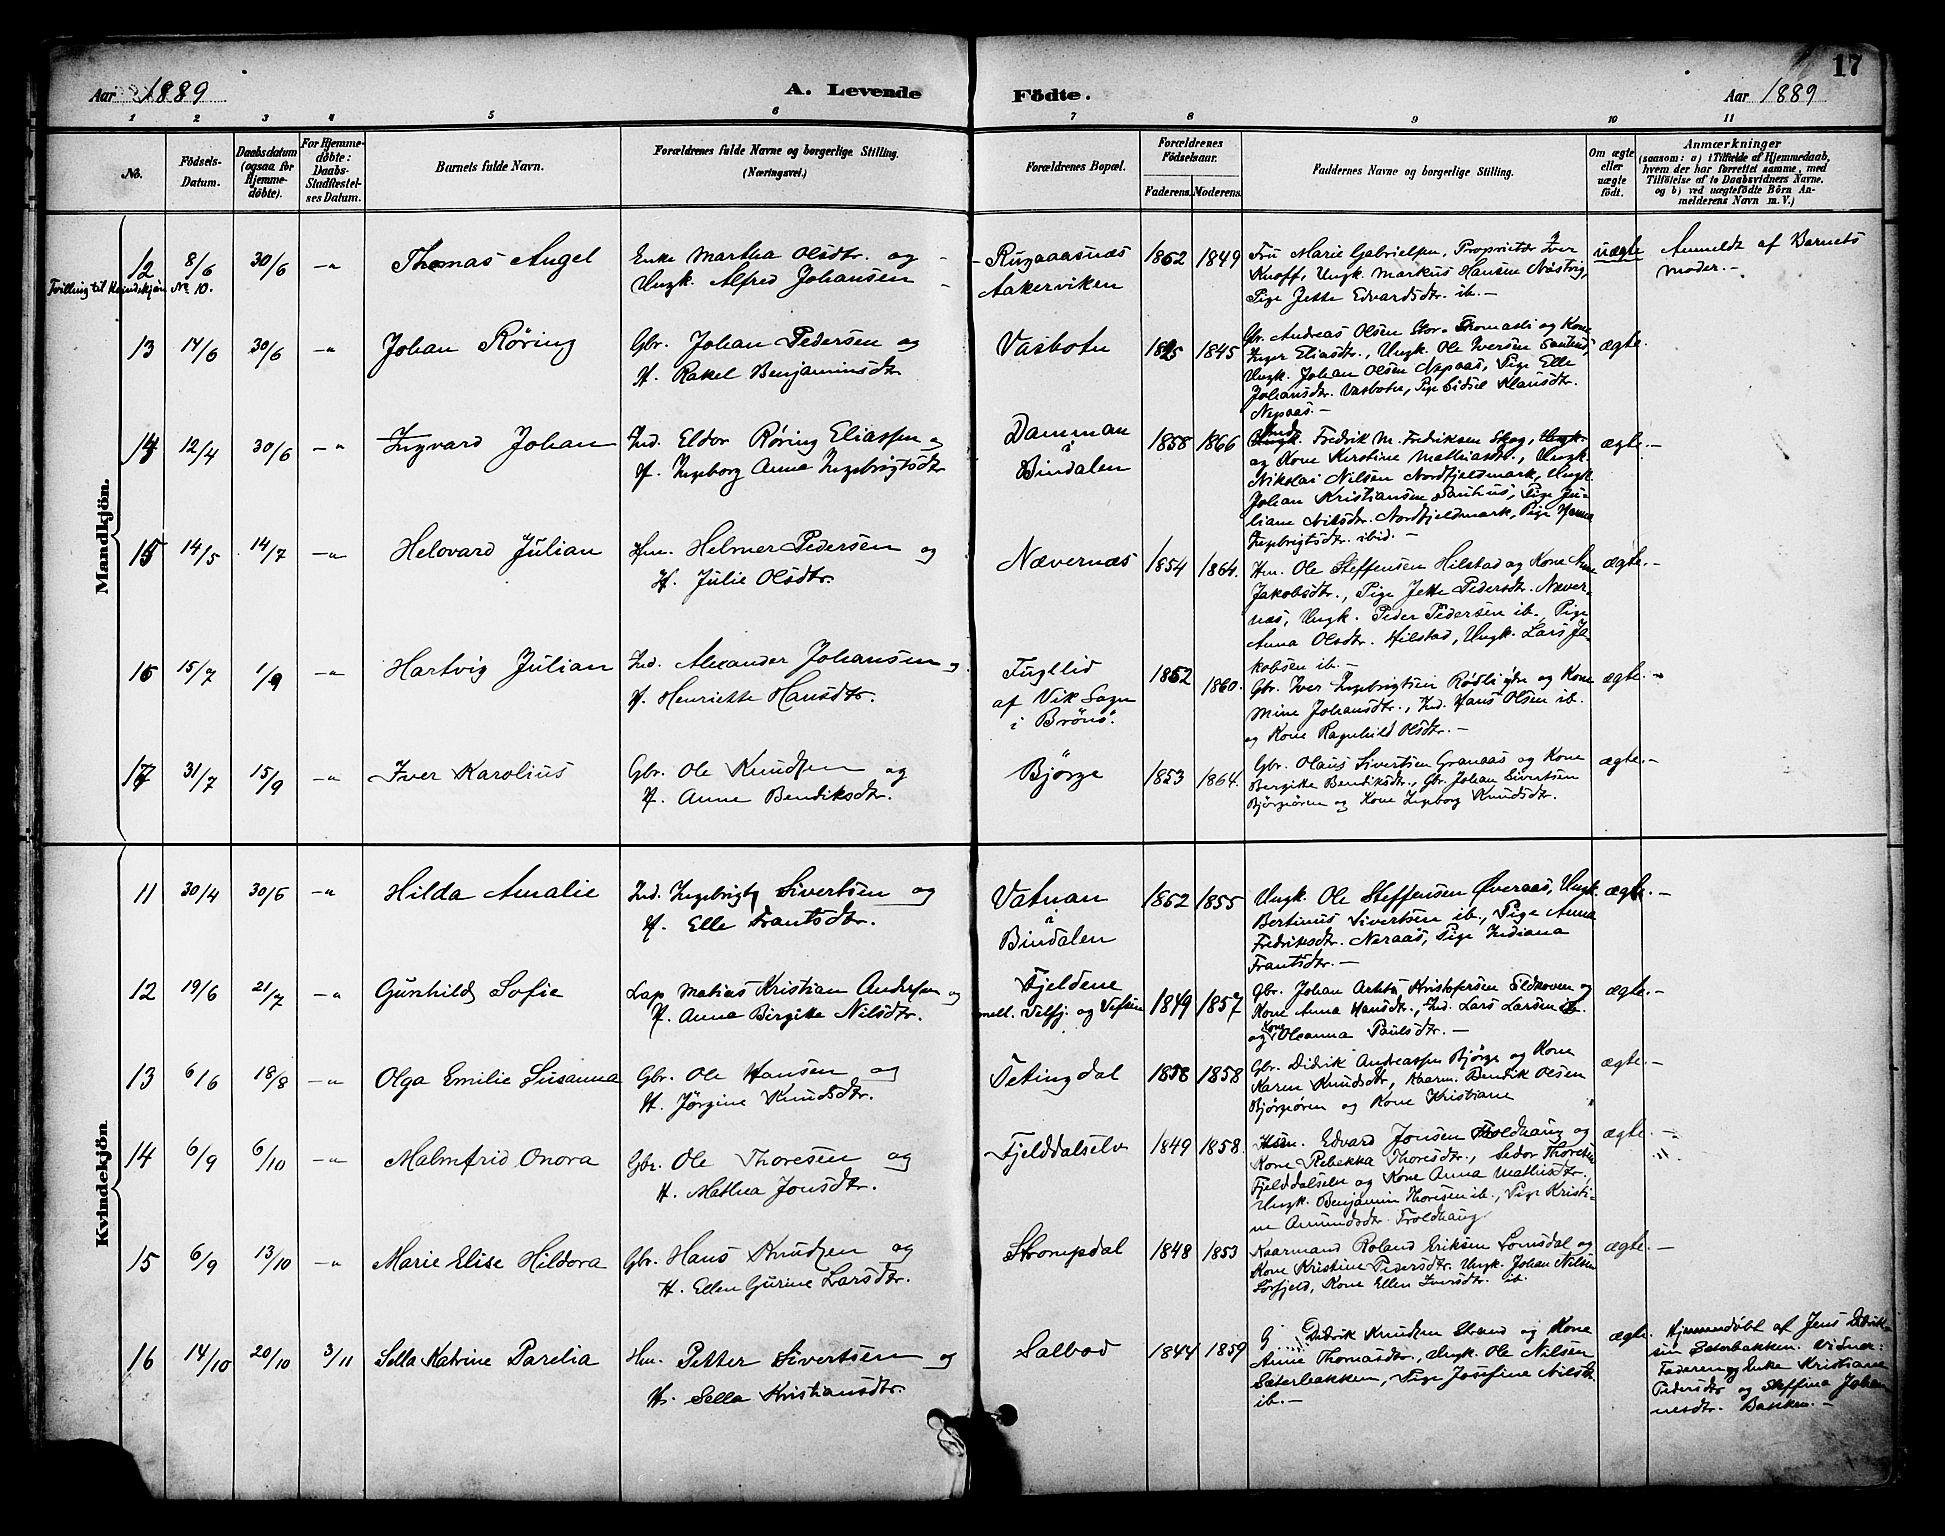 Aar 1889
A. Levende
Födte.
Aar 1889
17
1 2 3 4 5 6 7 8 9 10 11
No.
Födsels-
Datum.
Daabsdatum
(ogsaa for
Hjemme-
döbte).
For Hjemme-
döbte:
Daabs-
Stadfæstel-
ses Datum.
Barnets fulde Navn.
Forældrenes fulde Navne og borgerlige Stilling.
(Næringsvei.)
Forældrenes Bopæl.
Forældrenes
Födselsaar.
Faderens. Moderens.
Faddernes Navne og borgerlige Stilling.
Om ægte
eller
uægte
födt.
Anmærkninger
(saasom: a) i Tilfælde af Hjemmedaab,
hvem der har forrettet samme, med
Tilföielse af to Daabsvidners Navne,
og b) ved uægtefödte Börn An-
melderens Navn m. V.)
Mandkjön.
12 8/6 30/6 -"- Thomas Angel
Tvilling til Kvindekjön No. 10.
Enke Martha Olsdtr. og
Ungk. Alfred Johansen
Rugaaasnæs
Aakerviken
1862 1849
Fru Marie Gabrielsen, Proprietær Iver
Knoff, Ungk. Markus Hansen Næstvig,
Pige Jette Edvardsdtr. ib. -
uægte
Anmeldt af Barnets
Moder. -
13 17/6 30/6 -"- Johan Røring
Gbr. Johan Pedersen og
H. Rakel Benjaminsdtr
Vasbotn
1845
Gbr. Andreas Olsen Stor-Thomasli og Kone
Inger Eliasdtr., Ungk. Ole Iversen
Ungk. Johan Olsen Nepaas, Pige Elle
Johansdtr. Vasbotn, Pige Sidsel Klausdtr.
Nepaas. -
ægte.
14 12/4 30/6 -"- Ingvard Johan
Ind. Eldor Røring Eliassen og
H. Ingeborg Anna Ingebrigtsdtr
Damman
i
Bindalen
1858 1866
Ind. Fredrik M. Fredriksen Skog,
og Kone Kirstine Mathiasdtr., Ungk.
Nikolai Nilsen Nordfjeldmark, Ungk.
Johan Kristiansen Sanhus, Pige Ju-
liane Nilsdtr. Nordfjeldmark, Pige
Ingebrigtsdtr. ibid. -
ægte. -
15 14/5 14/7 -"- Helovard Julian
Hm. Helmer Pedersen og
H. Julie Olsdtr.
Nævernæs
1854 1864.
Hm. Ole Steffensen Hilstad og Kone
Jakobsdtr., Pige Jette Pedersdtr. Næver-
næs, Ungk. Peder Pedersen ib. Pige
Anna Olsdtr. Hilstad, Ungk. Lars Ja-
kobsen ib. -
ægte. -
16 15/7 1/9 -"- Hartvig Julian
Ind. Alexander Johansen og
H. Henriette Hansdtr.
Fugllid
af Vik Sogn
i Brönö.
1862 1860.
Gbr. Iver Ingebrigtsen Rødli ydre og Kone
Mine Johansdtr., Ind. Hans Olsen ib.
og Kone Ragnhild Olsdtr. -
ægte. -
17 31/7 15/9 -"- Iver Karolius
Gbr. Ole Knudsen og
H. Anne Bendiksdtr.
Bjørge
1853 1864.
Gbr. Olaus Sivertsen Granaas og Kone
Bergitte Bendiksdtr., Gbr. Johan Sivertsen
Bjørgøren og Kone Ingeborg Knudsdtr.
ægte. -
Kvindekjön.
11 30/4 30/6 -"- Hilda Amalie
Ind. Ingebrigt Sivertsen og
H. Elle Frantsdtr.
Vatnan
i
Bindalen
1862 1855
Ungk. Ole Steffensen Øveraas, Ungk.
Bertinus Sivertsen ib., Pige Anna
Fredriksdtr. Neraas, Pige Indiana
Frantsdtr. -
ægte -
12 19/6 21/7 -"- Gunhild Sofie
Lap Matias Kristian Andersen og
H. Anna Birgitte Nilsdtr.
Fjeldene
mell. Velfj. og Vefsen
1849 1857
Gbr. Johan Kristofersen og
Kone Anna Hansdtr., Ind. Lars Larsen ib.
og Kone Oleanna Paulsdtr. -
ægte. -
13 6/6 18/8 -"- Olga Emilie Susanna
Gbr. Ole Hansen og
H. Jørgine Knudsdtr.
Tetingdal
1858 1858
Gbr. Didrik Andreassen Bjørge og Kone
Karen Knudsdtr, Kaarm. Bendik Olsen
Bjørgøren og Kone Kristiane "
ægte. -
14 6/9 6/10 -"- Malmfrid Onora
Gbr. Ole Thoresen og
H. Mathea Jonsdtr.
Fjelddalselv
1849 1858.
Hm. Edvard Jonsen Troldhaug og
Kone Rebekka Thoresdtr., Sedor Thoresen
Fjelddalselv og Kone Anna Mathisdtr.,
Ungk. Benjamin Thoresen ib., Pige Kristi-
ne Amundsdtr. Troldhaug
ægte. -
15 6/9 13/10 -"- Marie Elise Hildora
Gbr. Hans Knudsen og
H. Ellen Gurine Larsdtr.
Strompdal
1848 1853
Kaarmand Roland Eriksen Lomsdal og
Kone Kristine Pedersdtr. Ungk. Johan Nilsen
Sørfjeld, Kone Ellen Iversdtr. ib.
ægte. -
16 14/10 20/10 3/11 Sella Katrine Parelia
Hm. Petter Sivertsen og
H. Sella Kristiansdtr.
Salbod
1844 1859
Didrik Knudsen Strand og Kone
Anne Thomasdtr., Ungk. Ole Nilsen
Sæterbakken, Pige Josefina Nilsdtr.
ib. -
ægte.
Hjemmedøbt af Jens Didrik-
sen Sæterbakken. Vidner:
Faderen og Enke Kristiane
Pedersdtr og Steffina Johan-
nesdtr. Bakken. -